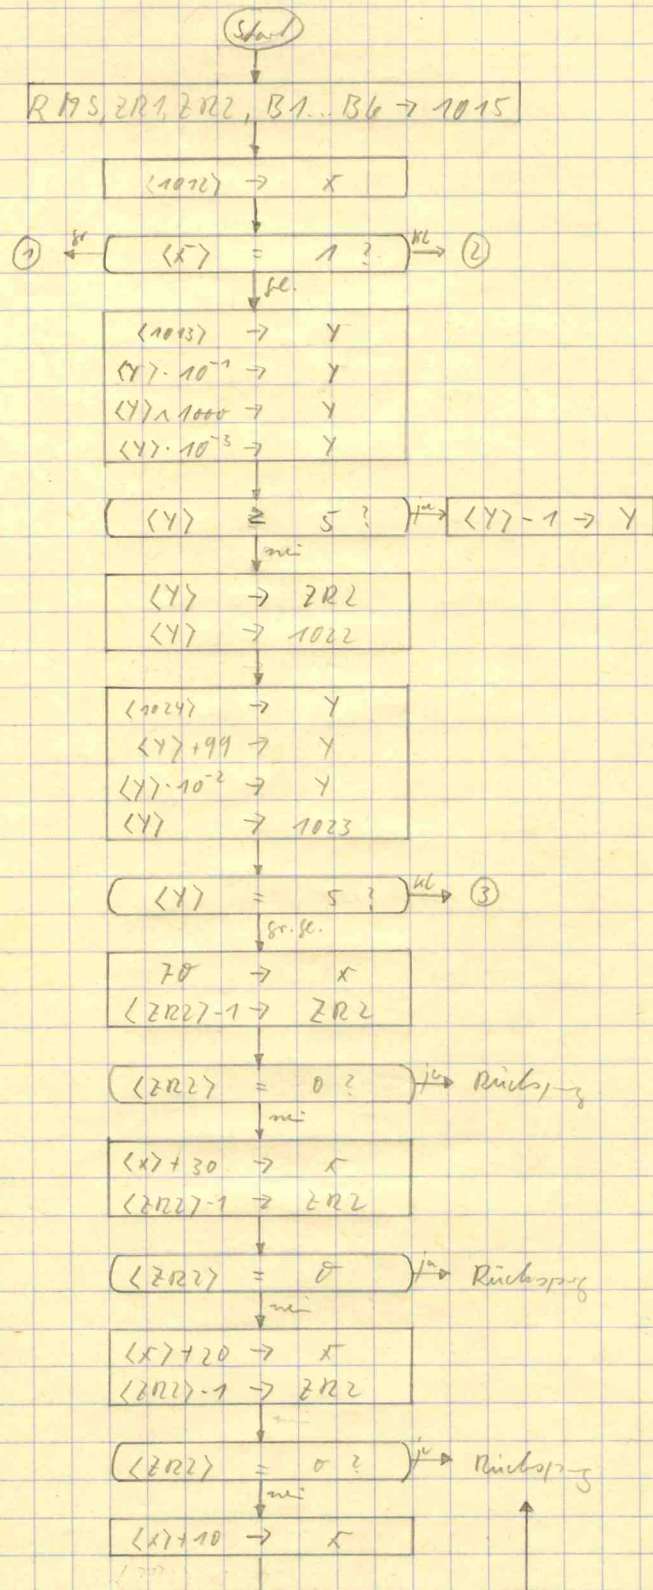 Start
RMS, ZR1, ZR2, B1...B6 → 1015
<1012> → X
① gr <X> = 1 ? kl ②
gl.
<1013> → Y
<Y>·10⁻¹ → Y
<Y>∧1000 → Y
<Y>·10⁻³ → Y
<Y> ≥ 5 ? ja <Y>-1 → Y
nein
<Y> → ZR2
<Y> → 1022
<1024> → Y
<Y>+99 → Y
<Y>·10⁻² → Y
<Y> → 1023
<Y> = 5 ? kl ③
gr. gl.
70 → X
<ZR2>-1 → ZR2
<ZR2> = 0 ? ja Rücksprg
nein
<X>+30 → X
<ZR2>-1 → ZR2
<ZR2> = 0 ja Rücksprg
nein
<X>+20 → X
<ZR2>-1 → ZR2
<ZR2> = 0 ? ja Rücksprg
nein
<X>+10 → X